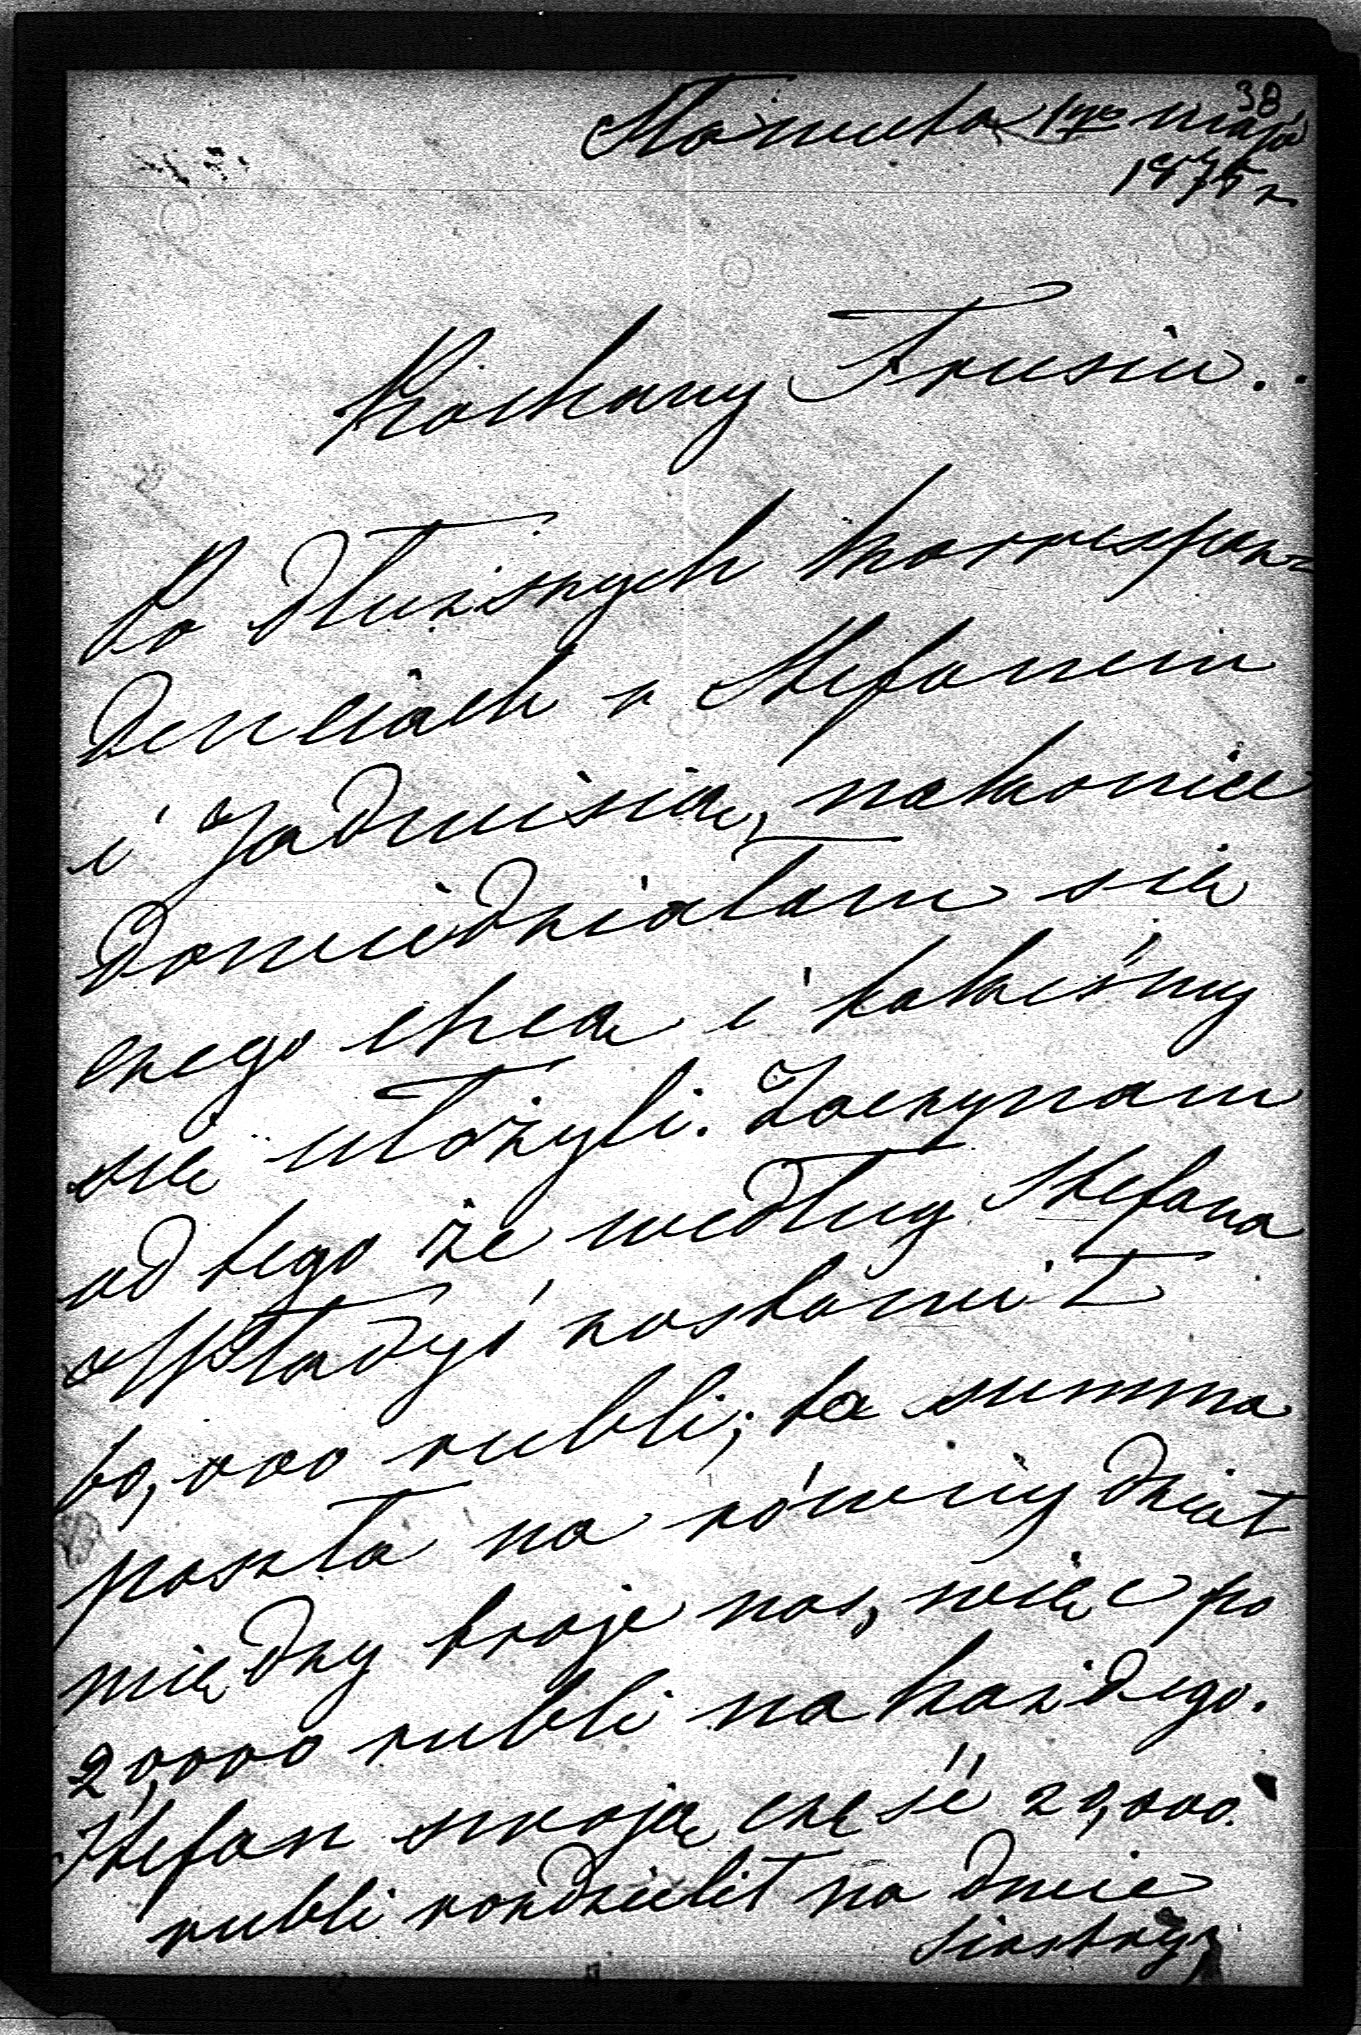 38
Sławuta 17go maja
1875 r
Kochany Frusiu..
Po dłuższych korrespon=
denciach z Stefanem
i Jadwisią, nakoniec
dowiedziałam się
czego chcą i takieśmy
się ułożyli. Zaczynam
od tego że według Stefana
Władyś zostawił
60,000 rubli; ta summa
poszła na równy dział
między troje nas, więc po
20,000 rubli na każdego.
Stefan swoją część 20,000.
rubli rozdzielił na dwie
siostry,